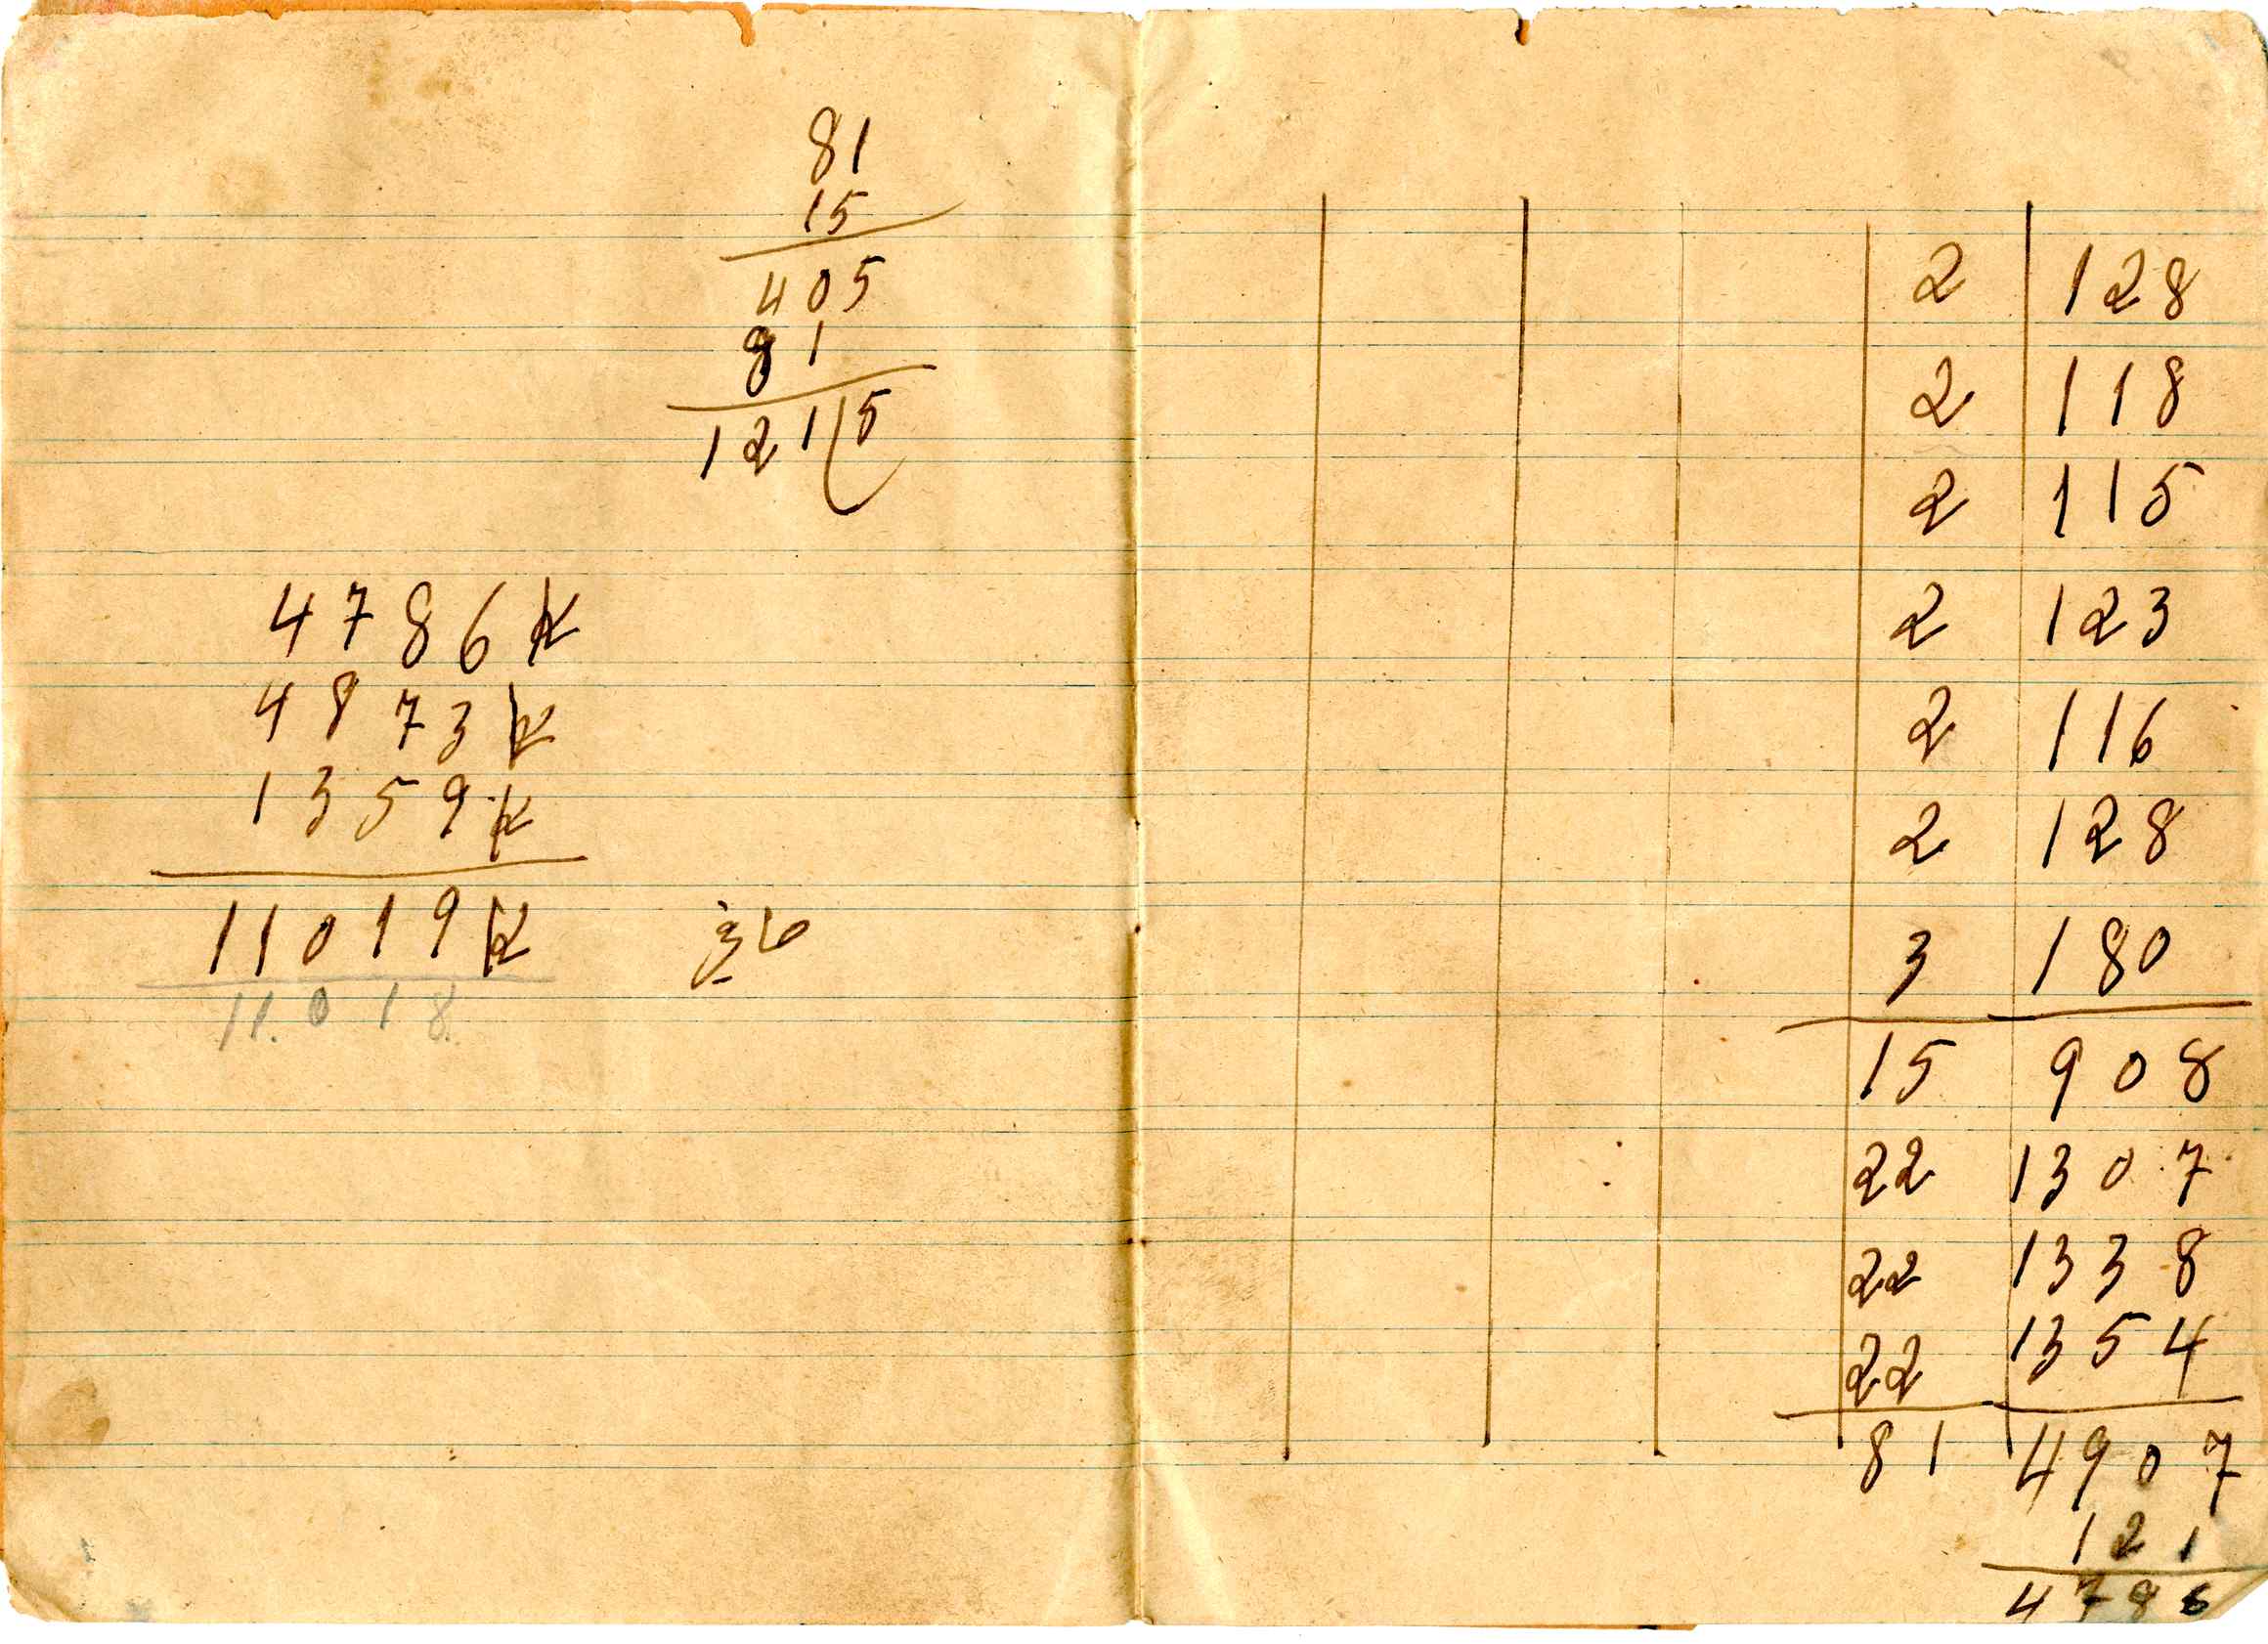 81
15
405
81
121(5
4786 K
4873 K
1359 K
11019 K
11.018.
2 128
2 118
2 115
2 123
2 116
2 128
3 180
15 908
22 1307
22 1338
22 1354
81 4907
121
4786